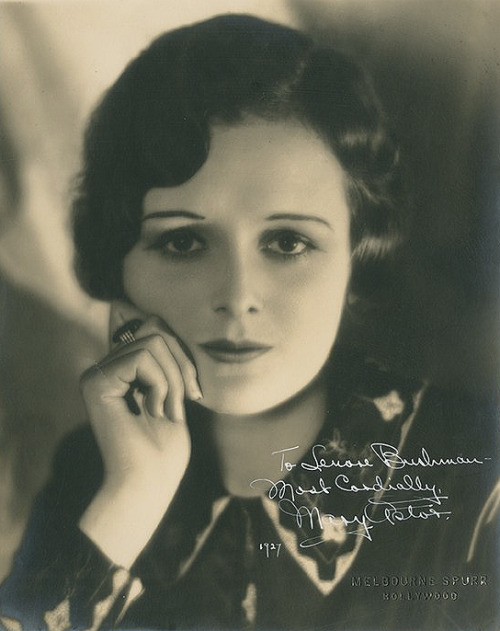 To Lenore Bushman-
Most Cordially,
Mary Astor.
1927
MELBOURNE SPURR
HOLLYWOOD